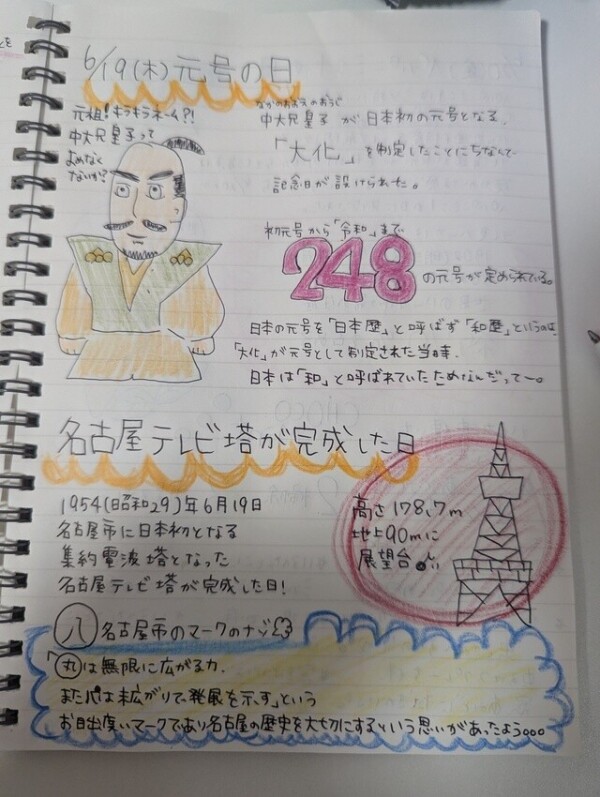 6/19(木)元号の日
元祖!キラキラネーム?!
中大兄皇子って
よめなく
ないか?
なかのおおえのおうじ
中大兄皇子 が日本初の元号となる、
「大化」を制定したことにちなんで
記念日が設けられた。
初元号から「令和」まで
248の元号が定められている。
日本の元号を「日本歴」と呼ばず「和歴」というのは
「大化」が元号として制定された当時、
日本は「和」と呼ばれていたためなんだってー。
名古屋テレビ塔が完成した日
1954(昭和29)年6月19日
名古屋市に日本初となる
集約電波塔となった
名古屋テレビ塔が完成した日!
高さ178,7m
地上90mに
展望台
八 名古屋市のマークのナゾ
「丸は無限に広がる力、
また八は末広がりで、発展を示す」という
お目出度いマークであり名古屋の歴史を大切にするという思いがあったよう。。。